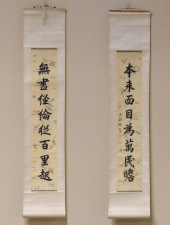 本來面目為萬民瞻
無盡径倫從百里越